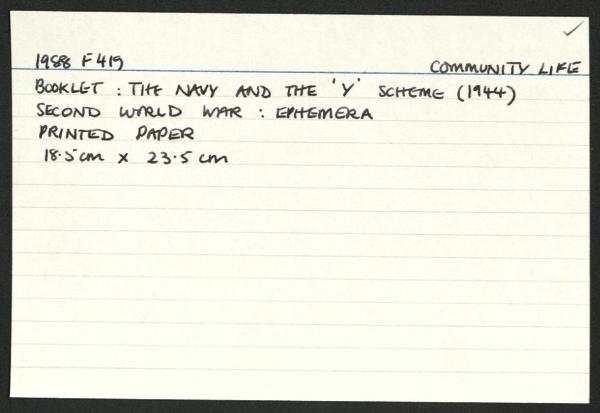 1988 F419 COMMUNITY LIFE
BOOKLET : THE NAVY AND THE 'Y' SCHEME (1944)
SECOND WORLD WAR : EPHEMERA
PRINTED PAPER
18.5cm x 23.5cm